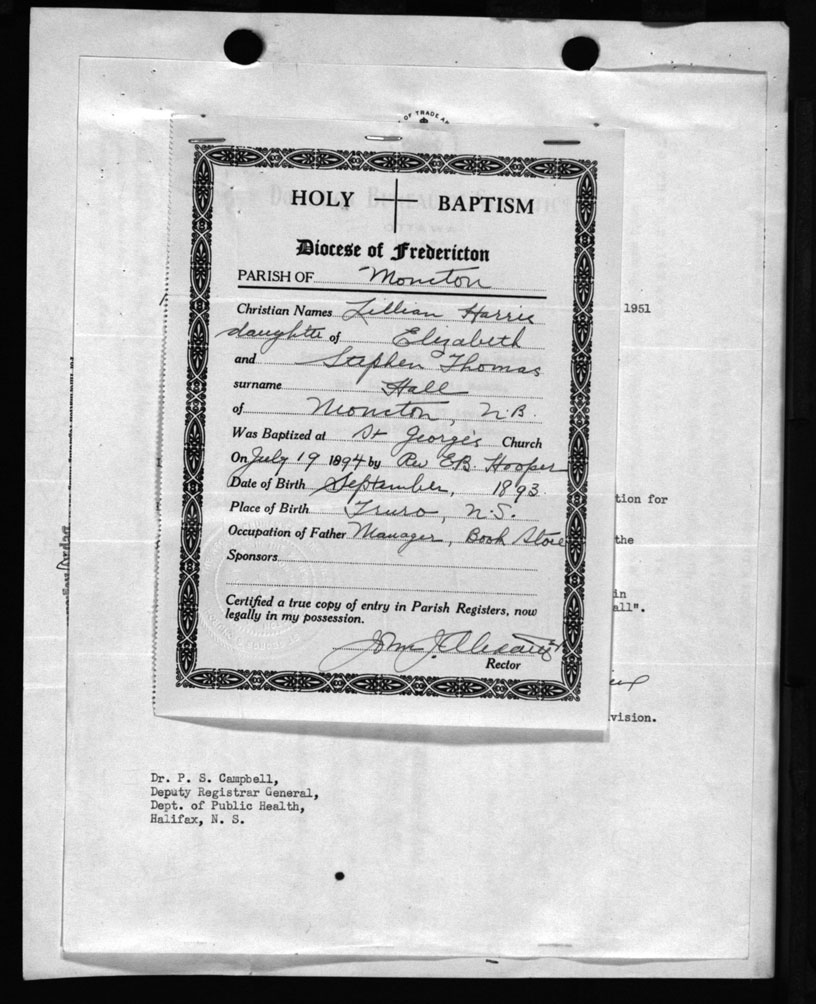 OF TRADE A
HOLY BAPTISM
Diocese of Fredericton
PARISH OF Moncton
1951
Christian Names Lillian Harris
daughter of Elizabeth
and Stephen Thomas
surname Hall
of Moncton, N.B.
Was Baptized at St George's Church
On July 19 1894 by Rev E.B. Hooper
Date of Birth September, 1893.
tion for
Place of Birth Truro, N.S.
Occupation of Father Manager, Book Store
the
Sponsors
in
all".
Certified a true copy of entry in Parish Registers, now
legally in my possession.
John J. Alexander
Rector
vision.
Dr. P. S. Campbell,
Deputy Registrar General,
Dept. of Public Health,
Halifax, N. S.